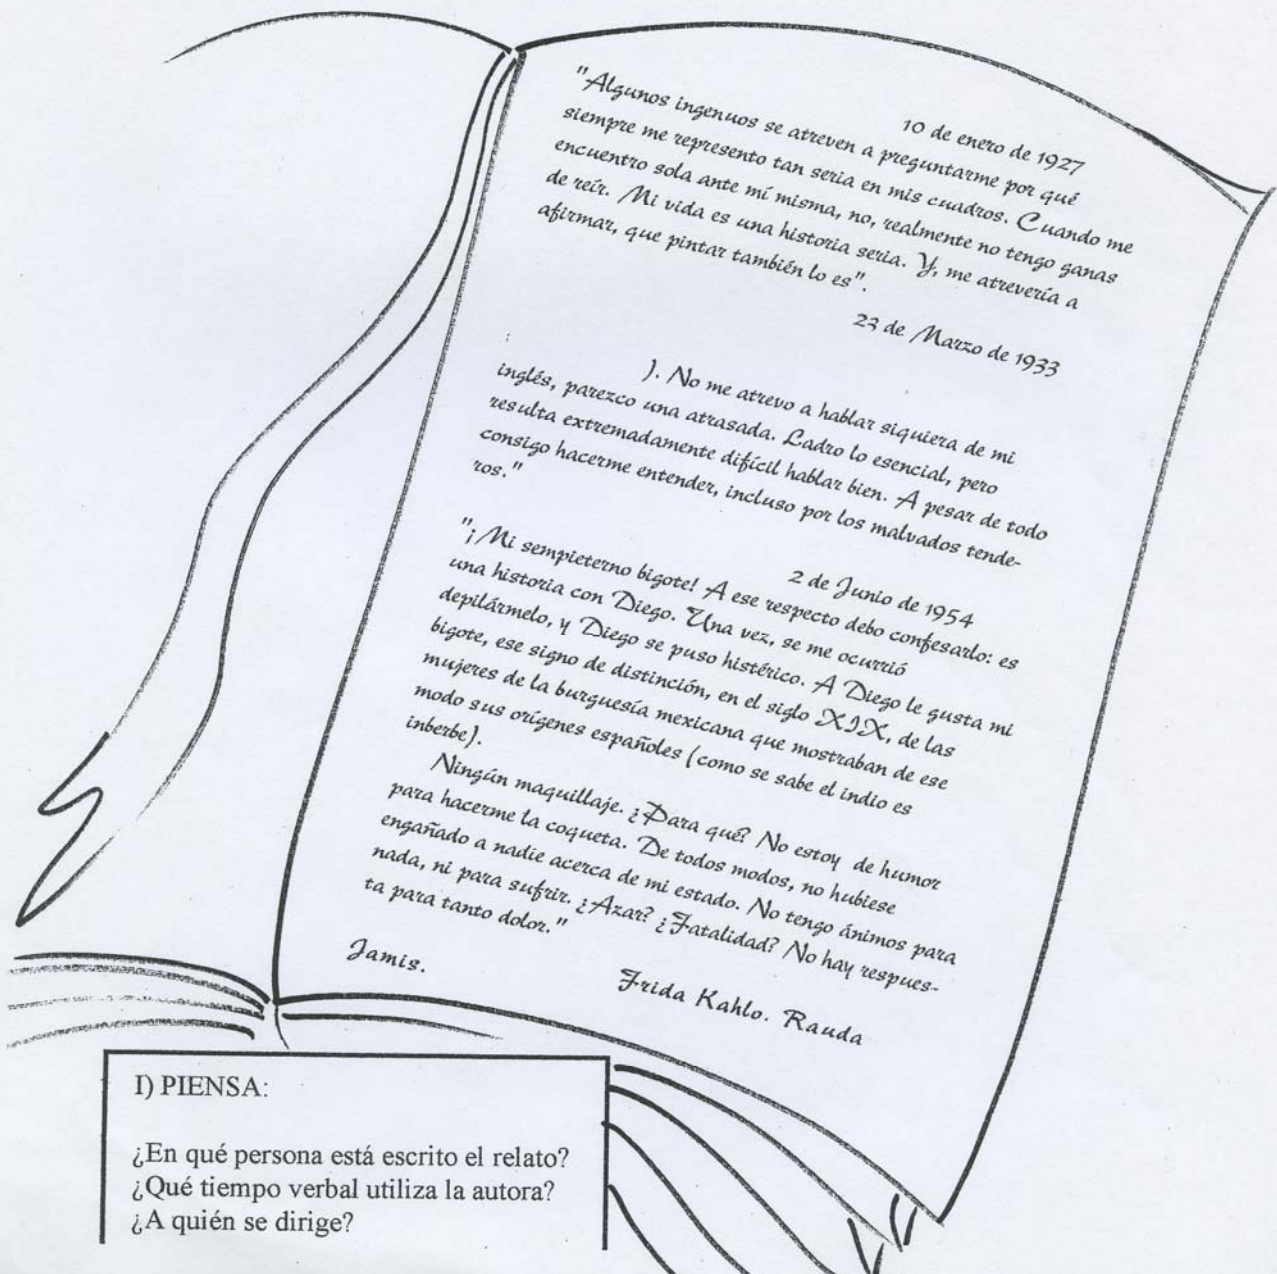 10 de enero de 1927
"Algunos ingenuos se atreven a preguntarme por qué
siempre me represento tan seria en mis cuadros. Cuando me
encuentro sola ante mí misma, no, realmente no tengo ganas
de reír. Mi vida es una historia seria. Y, me atrevería a
afirmar, que pintar también lo es".
23 de Marzo de 1933
). No me atrevo a hablar siquiera de mi
inglés, parezco una atrasada. Ladro lo esencial, pero
resulta extremadamente difícil hablar bien. A pesar de todo
consigo hacerme entender, incluso por los malvados tende-
ros."
2 de Junio de 1954
"¡Mi sempieterno bigote! A ese respecto debo confesarlo: es
una historia con Diego. Una vez, se me ocurrió
depilármelo, y Diego se puso histérico. A Diego le gusta mi
bigote, ese signo de distinción, en el siglo XIX, de las
mujeres de la burguesía mexicana que mostraban de ese
modo sus orígenes españoles (como se sabe el indio es
inberbe).
Ningún maquillaje. ¿Para qué? No estoy de humor
para hacerme la coqueta. De todos modos, no hubiese
engañado a nadie acerca de mi estado. No tengo ánimos para
nada, ni para sufrir. ¿Azar? ¿Fatalidad? No hay respues-
ta para tanto dolor."
Frida Kahlo. Rauda
Jamis.
I) PIENSA:
¿En qué persona está escrito el relato?
¿Qué tiempo verbal utiliza la autora?
¿A quién se dirige?